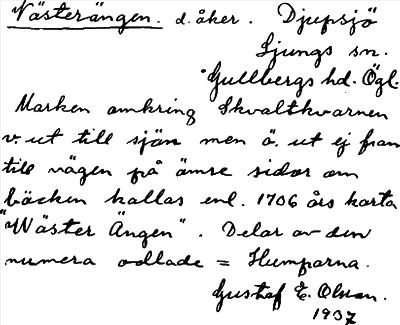 Västerängen. d. åker. Djupsjö
Ljungs sn.
Gullbergs hd. Ögl.
Marken omkring Skvaltkvarnen
v. ut till sjön men ö. ut ej fram
till vägen på ömse sidor om
bäcken kallas enl. 1706 års karta
"Wäster Ängen". Delar av den
numera odlade = Humparna.
Gustaf E. Olsson.
1937